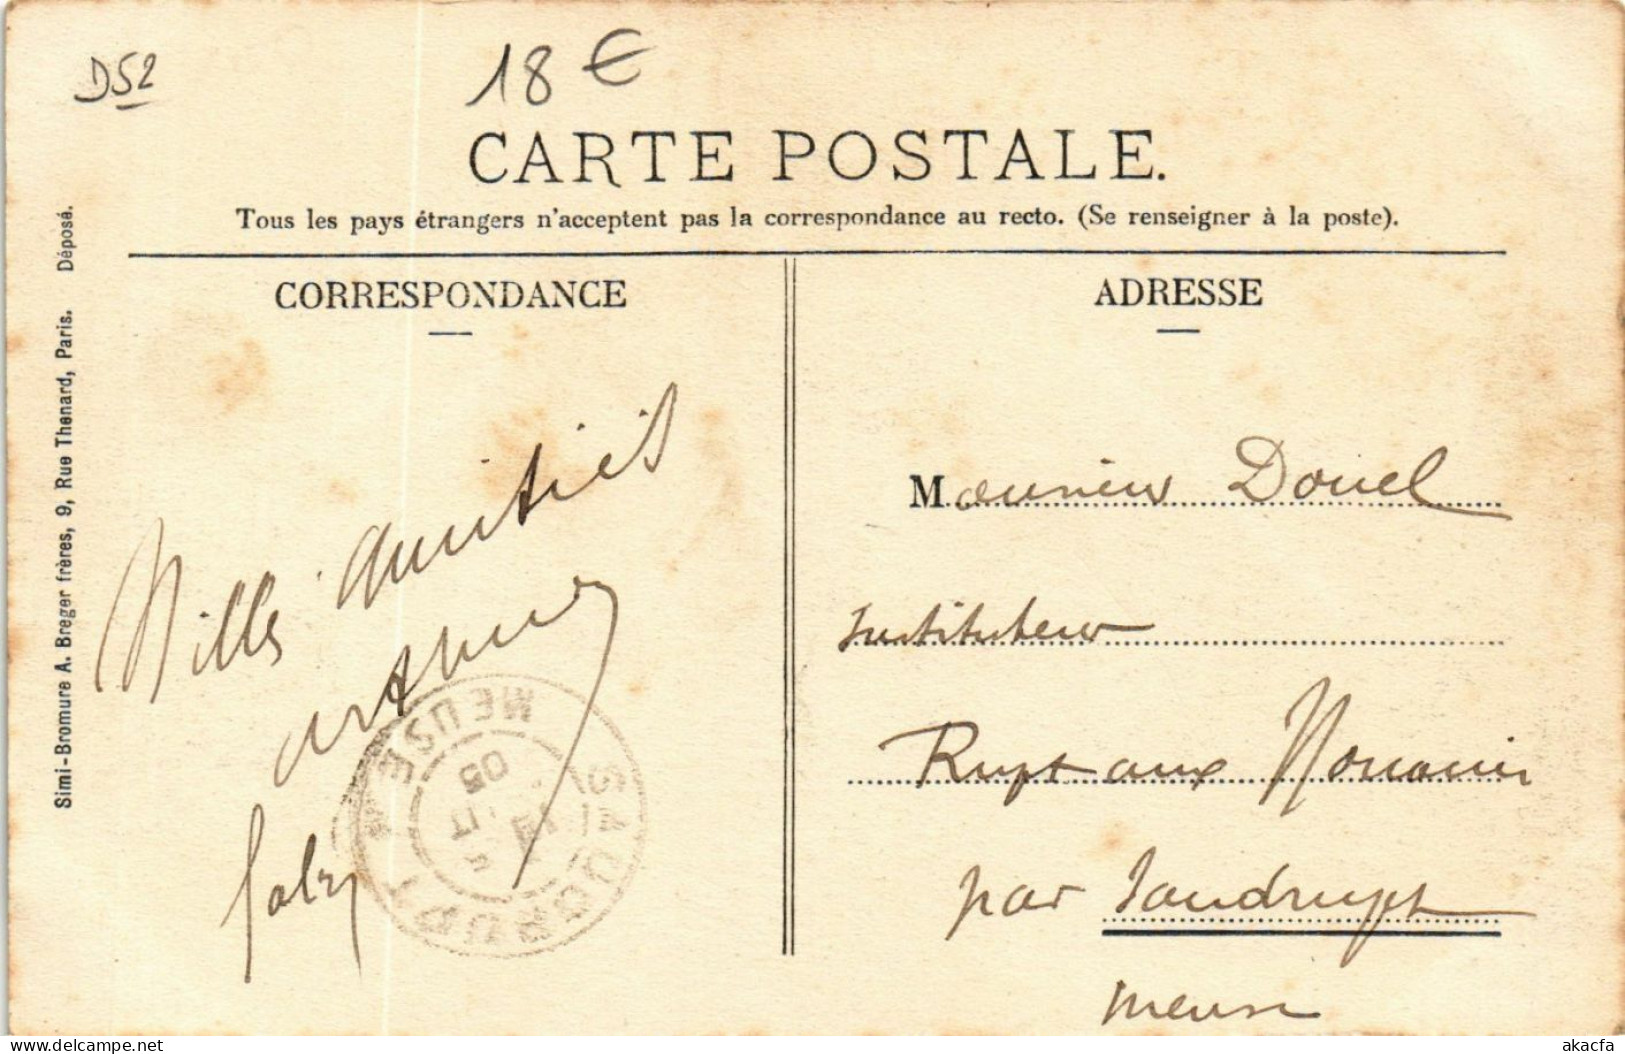 D52
18 €
CARTE POSTALE.
Tous les pays étrangers n'acceptent pas la correspondance au recto. (Se renseigner à la poste).
CORRESPONDANCE
ADRESSE
Simi-Bromure A. Breger frères, 9, Rue Thenard, Paris. Déposé.
Mille amitiés
Monsieur Douel
Instituteur
Rupt aux Nonains
par Saudrupt
Meuse
SAUDRUPT MEUSE
05
akacfa